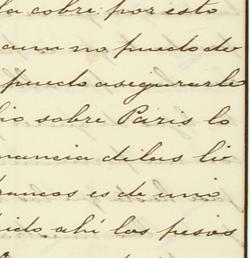 la cobre por esto
aun no puedo de
puedo asegurarle
io sobre Paris lo
nancia de las li
francos es de uno
ido ahí los pesos